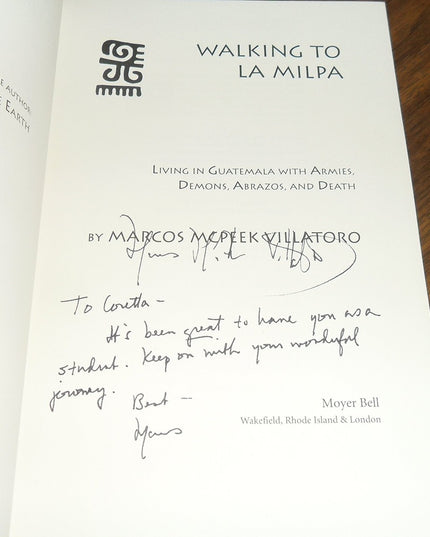 E AUTHOR:
E EARTH
WALKING TO
LA MILPA
LIVING IN GUATEMALA WITH ARMIES,
DEMONS, ABRAZOS, AND DEATH
BY MARCOS MCPEEK VILLATORO
To Coretta –
It's been great to have you as a
student. Keep on with your wonderful
journey.
Best –
Moyer Bell
Wakefield, Rhode Island & London